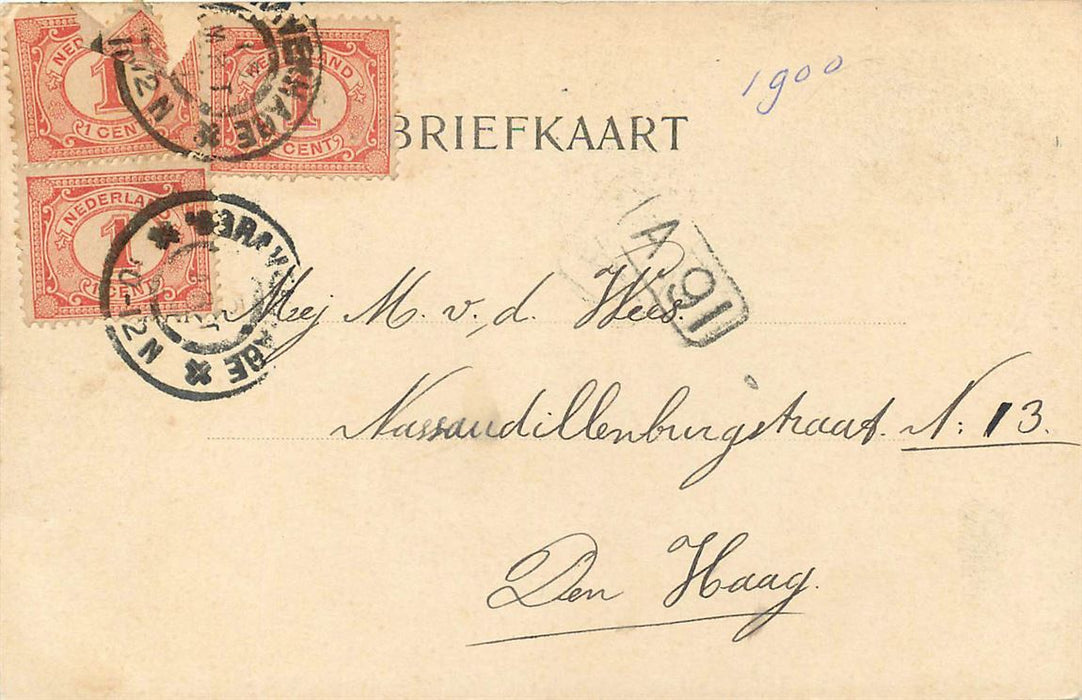 NEDERLAND
1
1 CENT
NEDERLAND
1
1 CENT
1900
BRIEFKAART
10-12 N
NEDERLAND
1
1 CENT
10-12 N
16
Mej M. v. d. Wees.
Nassaudillenburgstraat. N: 13.
Den Haag.